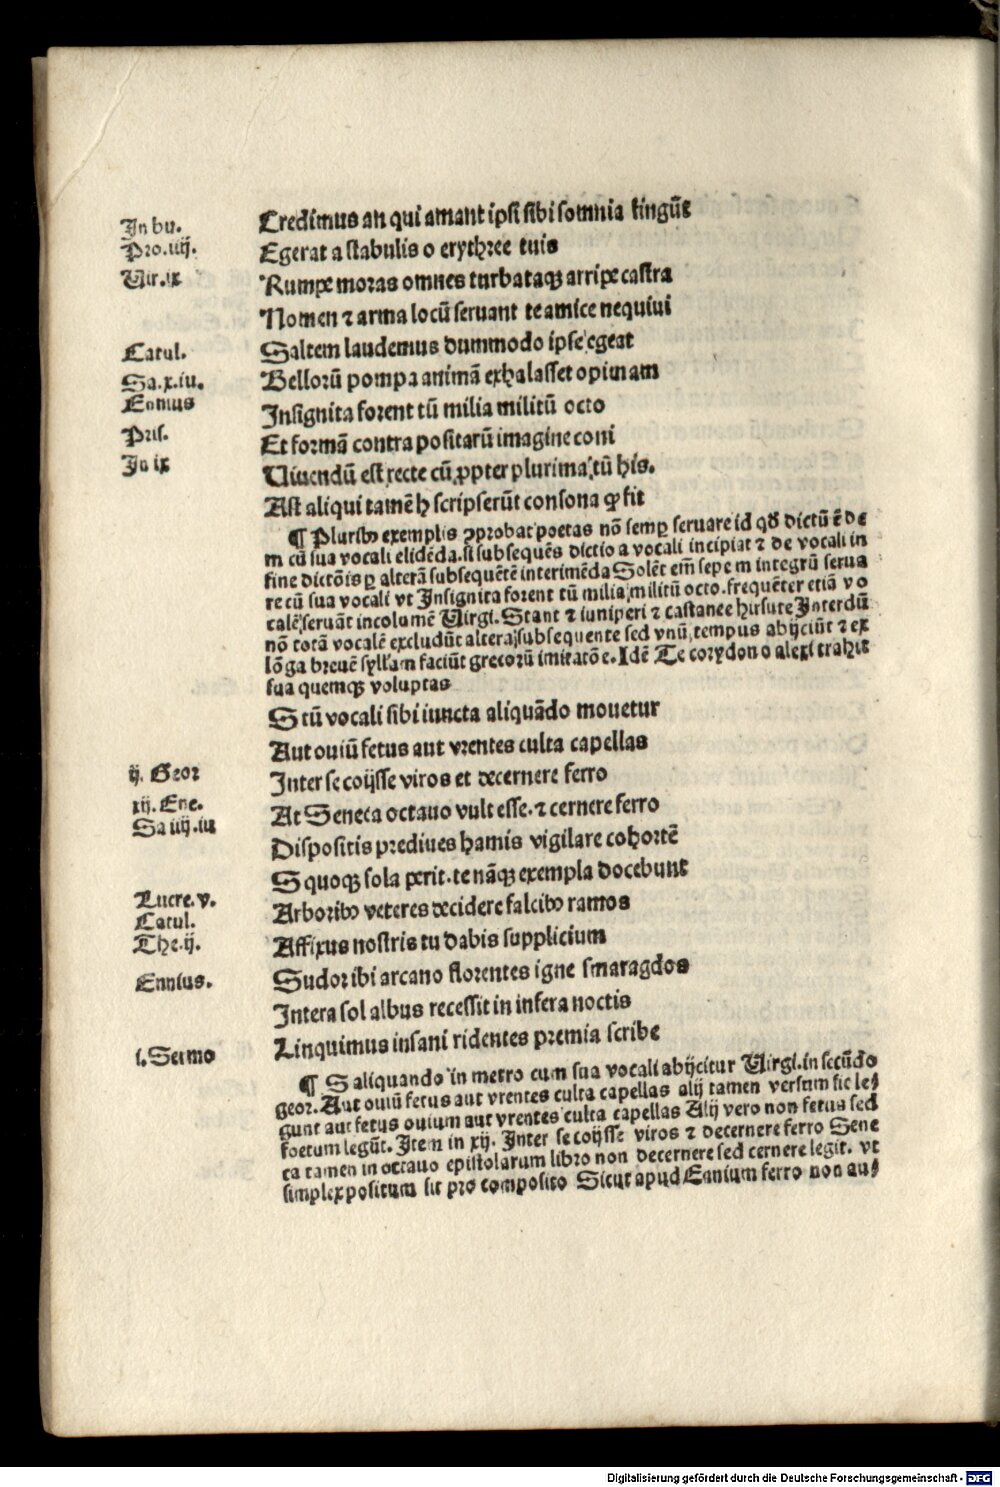 In bu. Credimus an qui amant ipsi sibi somnia fingūt
Pro.iiij. Egerat a stabulis o erythree tuis
Uir.ix Rumpe moras omnes turbataqꝫ arripe castra
Nomen ⁊ arma locū seruant te amice nequiui
Catul. Saltem laudemus dummodo ipse egeat
Sa.x.iu. Bellorū pompa animā exhalasset opimam
Ennius Insignita forent tū milia militū octo
Pris. Et formā contra positarū imagine coni
In ix Uiuendū est recte cū ꝓpter plurima, tū his.
Ast aliqui tamē hͦ scripserūt consona ꝙ fit
¶ Pluribꝰ exemplis ꝯprobat poetas nō semꝑ seruare id qđ dictū ē de
m cū sua vocali elidēda. si subsequēs dictio a vocali incipiat ⁊ de vocali in
fine dictōis ꝑ alterā subsequētē interimēda Solēt em̄ sepe m integrū serua
re cū sua vocali vt Insignita forent tū milia militū octo. frequēter etiā vo
calē seruāt incolumē Uirgi. Stant ⁊ iuniperi ⁊ castanee hirsute Interdū
nō totā vocalē excludūt altera subsequente sed vnū tempus abijciūt ⁊ ex
lōga breuē syllam faciūt grecorū imitatōe. Idē Te corydon o alexi trahit
sua quemqꝫ voluptas
S tū vocali sibi iuncta aliquādo mouetur
Aut ouiū fetus aut vrentes culta capellas
ij. Geor Inter se coijsse viros et decernere ferro
xij. Ene. At Seneca octauo vult esse. ⁊ cernere ferro
Sa iiij.iu Dispositis prediues hamis vigilare cohortē
S quoqꝫ sola perit. te nāqꝫ exempla docebunt
Lucre.v. Arboribꝰ veteres decidere falcibꝰ ramos
Catul. Affixus nostris tu dabis supplicium
The.ij. Sudor ibi arcano florentes igne smaragdos
Ennius. Intera sol albus recessit in infera noctis
i. Sermo Linquimus insani ridentes premia scribe
¶ S aliquando in metro cum sua vocali abijcitur Uirgi. in secūdo
geor. Aut ouiū fetus aut vrentes culta capellas alij tamen versum sic le⸗
gunt aut fetus ouium aut vrentes culta capellas Alij vero non fetus sed
foetum legūt. Item in xij. Inter se coijsse viros ⁊ decernere ferro Sene
ca tamen in octauo epistolarum libro non decernere sed cernere legit. vt
simplex positum sit pro composito Sicut apud Ennium ferro non au⸗
Digitalisierung gefördert durch die Deutsche Forschungsgemeinschaft - DFG